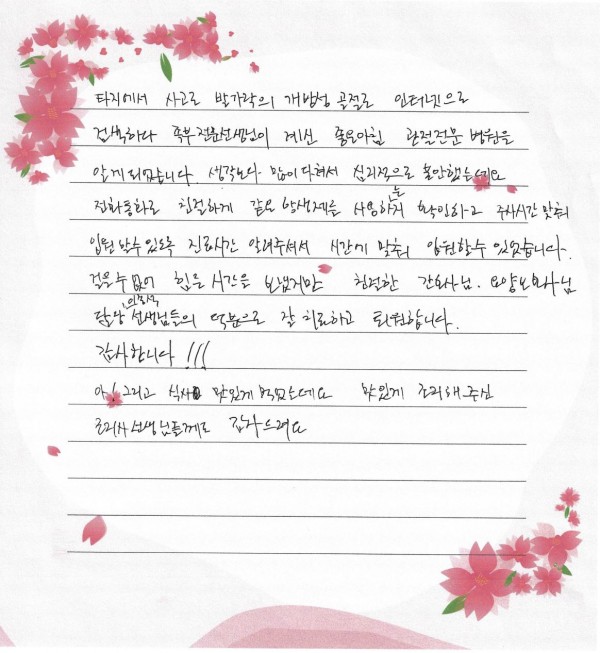 타지에서 사고로 발가락의 개방성 골절로 인터넷으로
검색하다 족부전문선생님이 계신 좋은아침 관절전문 병원을
알게 되었습니다. 생각보다 많이 다쳐서 심리적으로 불안했는데요
전화통화로 친절하게 같은 항생제를 사용하는지 확인하고 주사시간 맞춰
입원할수있도록 진료시간 알려주셔서 시간에 맞춰 입원할수 있었습니다.
걸을수 없어 힘든 시간을 보냈지만 친절한 간호사님. 요양보호사님
담당 의료진 선생님들의 덕분으로 잘 치료하고 퇴원합니다.
감사합니다 !!!
아! 그리고 식사 맛있게 먹었는데요 맛있게 조리해주신
조리사선생님들께도 감사드려요